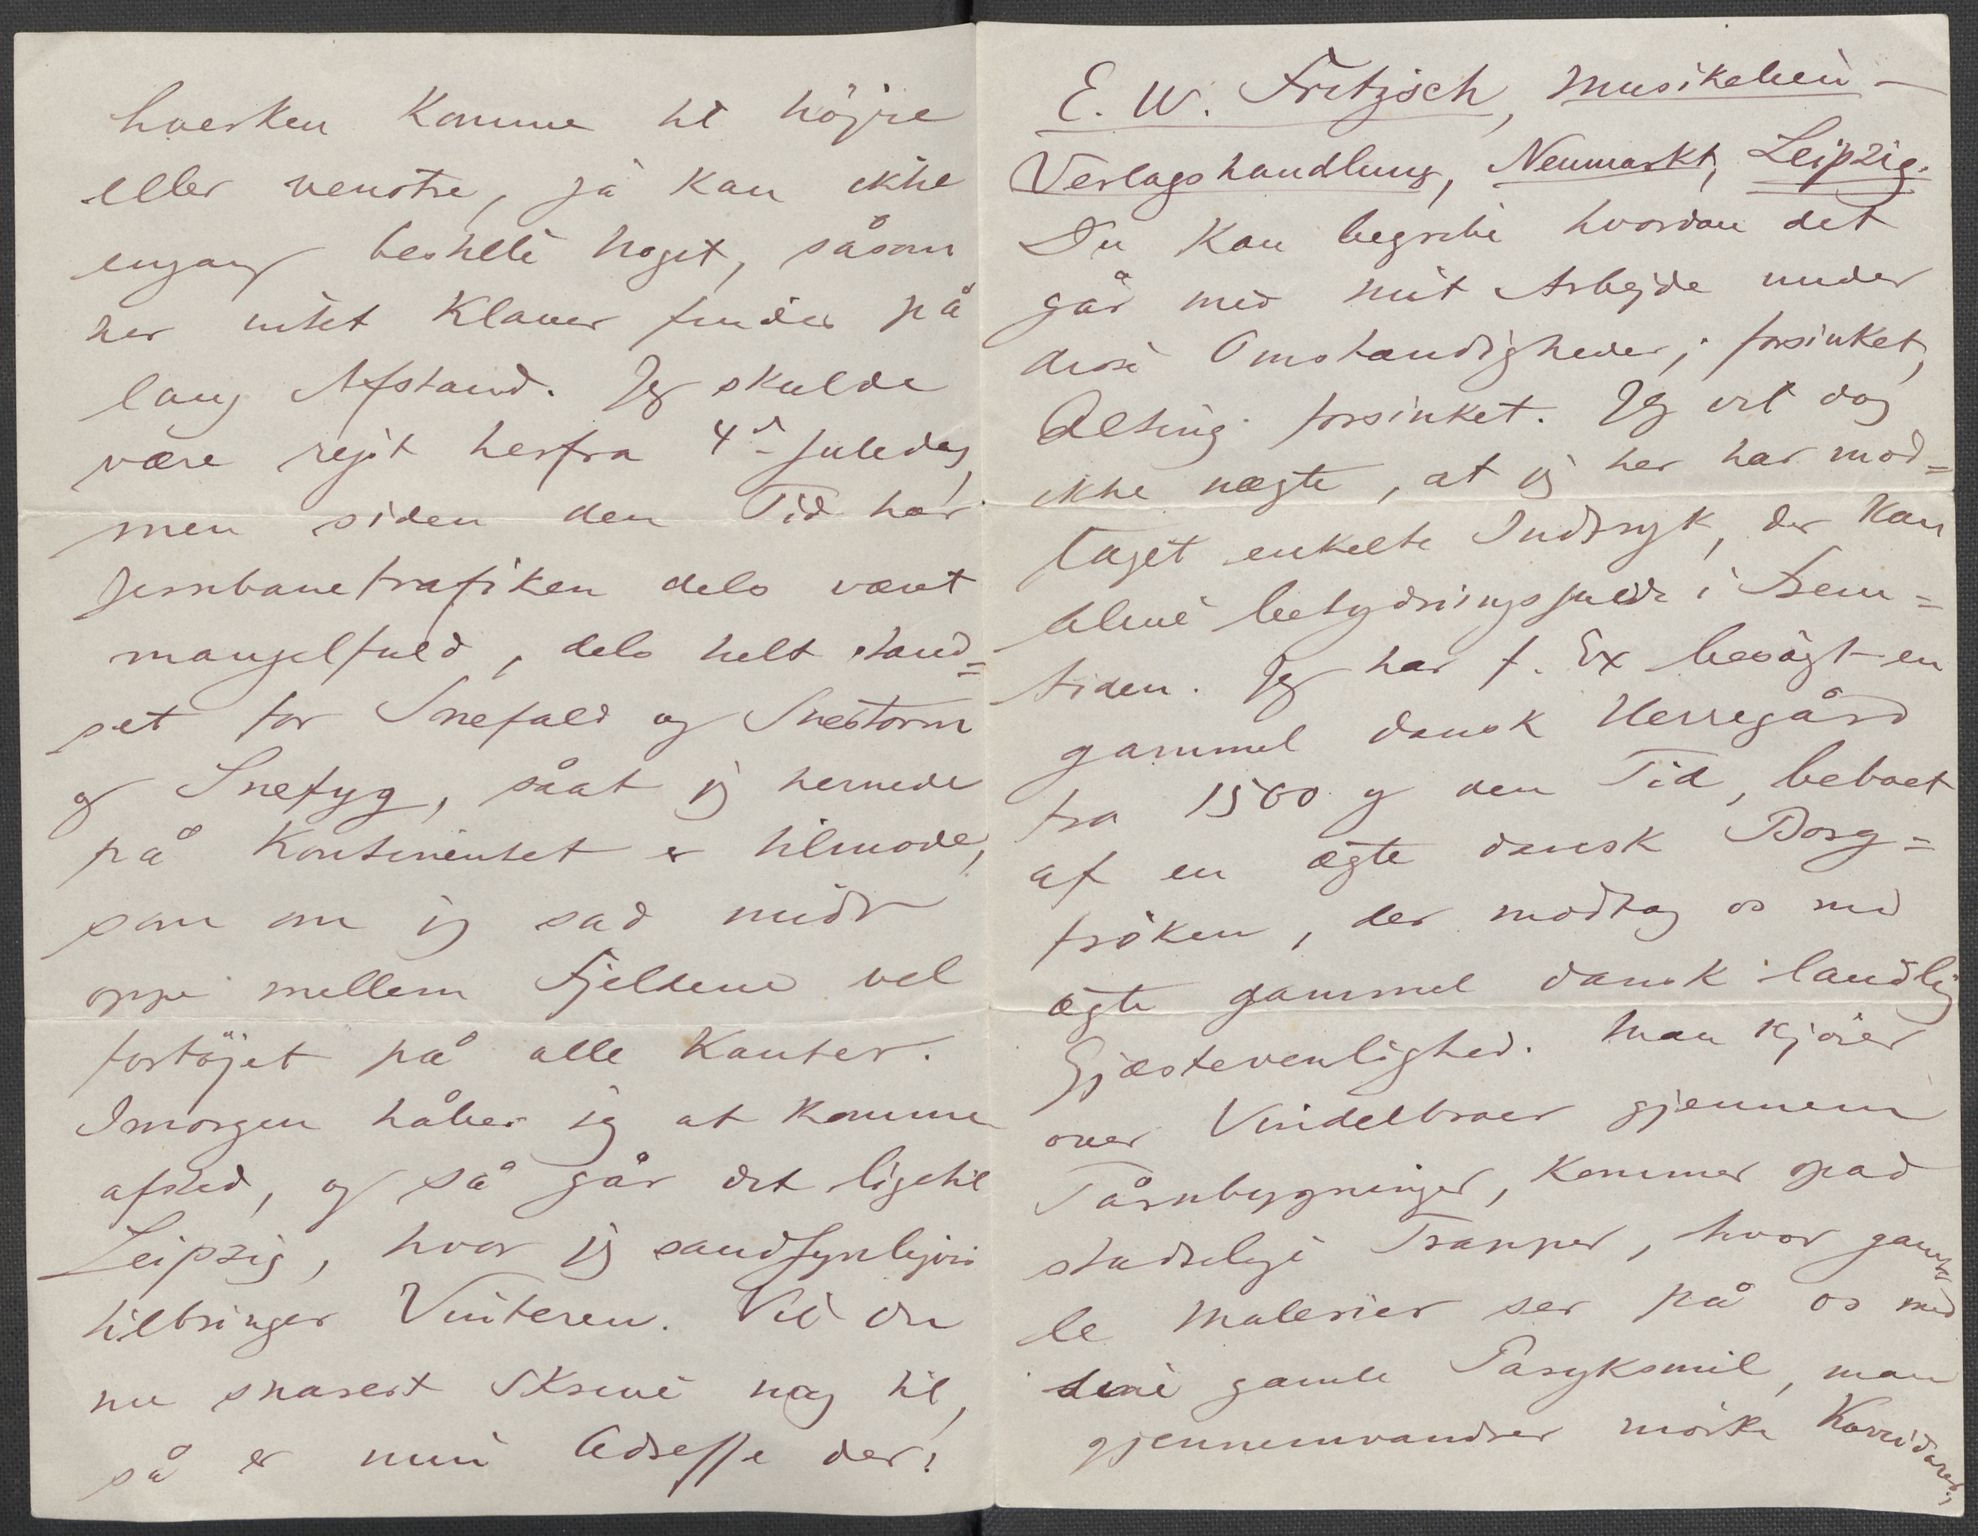 hverken komme til højre
eller venstre, ja kan ikke
engang bestille noget, såsom
her intet Klaver findes på
lang Afstand. Jeg skulde
være rejst herfra 4de Juledag,
men siden den Tid har
Jernbanetrafiken dels været
mangelfuld, dels helt stand=
set for Snefald og Snestorm
og Snefyg, såat jeg hernede
på Kontinentet er tilmode,
som om jeg sad midt
oppe mellem Fjeldene vel
fortøjet på alle Kanter.
Imorgen håber jeg at komme
afsted, og så går det ligetil
Leipzig, hvor jeg sandsynligvis
tilbringer Vinteren. Vil du
nu snarest skrive mig til,
så er min Adresse der:
E. W. Fritzsch, Musikalien-
Verlagshandlung, Neumarkt, Leipzig.
Du kan begribe hvordan det
går med mit Arbejde under
disse Omstændigheder; forsinket,
Alting forsinket. Jeg vil dog
ikke nægte, at jeg her har mod=
taget enkelte Indtryk, der kan
blive betydningsfulde i Frem=
tiden. Jeg har f. Ex besøgt en
gammel dansk Herregård
fra 1500 og den Tid, beboet
af en ægte dansk Borg=
frøken, der modtog os med
ægte gammel dansk landlig
Gjæstevenlighed. Man kjører
over Vindelbroer gjennem
Tårnbygninger, kommer opad
stadselige Trapper, hvor gam
le Malerier ser på os med
sine gamle Paryksmil, man
gjennemvandrer mørke Korridorer,